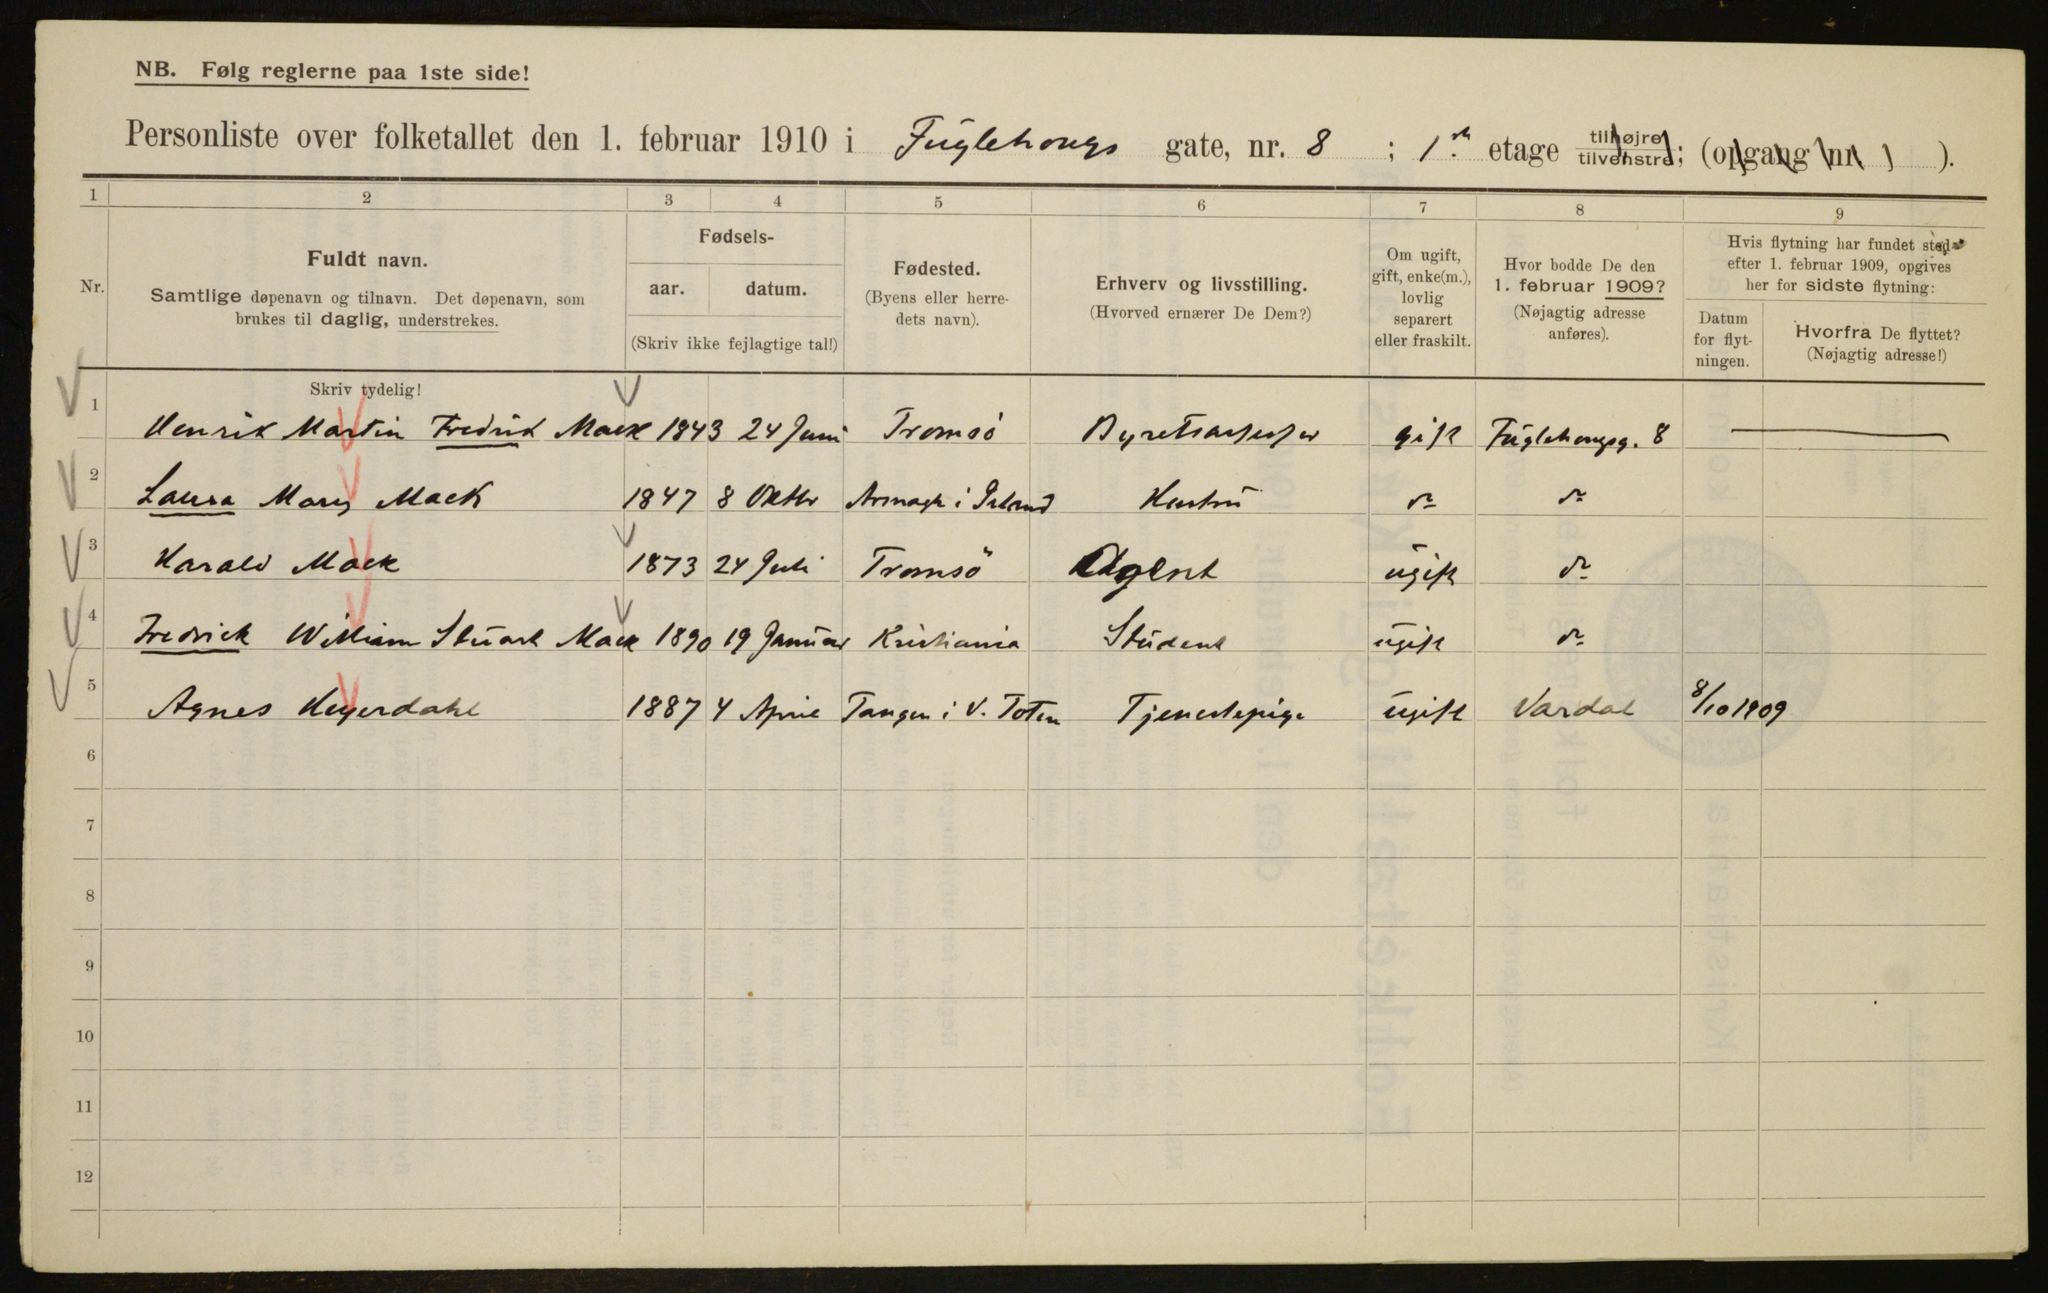 NB. Følg reglerne paa 1ste side!
Personliste over folketallet den 1. februar 1910 i Fuglehougs gate, nr. 8 ; 1ste etage tilhøjre tilvenstre; (opgang nr. ).
1 2 3 4 5 6 7 8 9
Nr.
Fuldt navn.
Samtlige døpenavn og tilnavn. Det døpenavn, som
brukes til daglig, understrekes.
Fødsels-
aar. datum.
(Skriv ikke fejlagtige tal!)
Fødested.
(Byens eller herre-
dets navn).
Erhverv og livsstilling.
(Hvorved ernærer De Dem?)
Om ugift,
gift, enke(m.),
lovlig
separert
eller fraskilt.
Hvor bodde De den
1. februar 1909?
(Nøjagtig adresse
anføres).
Hvis flytning har fundet sted
efter 1. februar 1909, opgives
her for sidste flytning:
Datum
for flyt-
ningen.
Hvorfra De flyttet?
(Nøjagtig adresse!)
Skriv tydelig!
1 Henrik Martin Fredrik Mack 1843 24 Juni Tromsö Byretsassessor gift Fuglehougsg. 8
2 Laura Mary Mack 1847 8 Oktbr Armagh i Irland Hustru do do
3 Harald Mack 1873 24 Juli Tromsö Agent ugift do
4 Fredrick William Stuart Mack 1890 19 Januar Kristiania Student ugift do
5 Agnes Heyerdahl 1887 4 April Tangen i V. Toten Tjenestepige ugift Vardal 8/10 1909
6
7
8
9
10
11
12